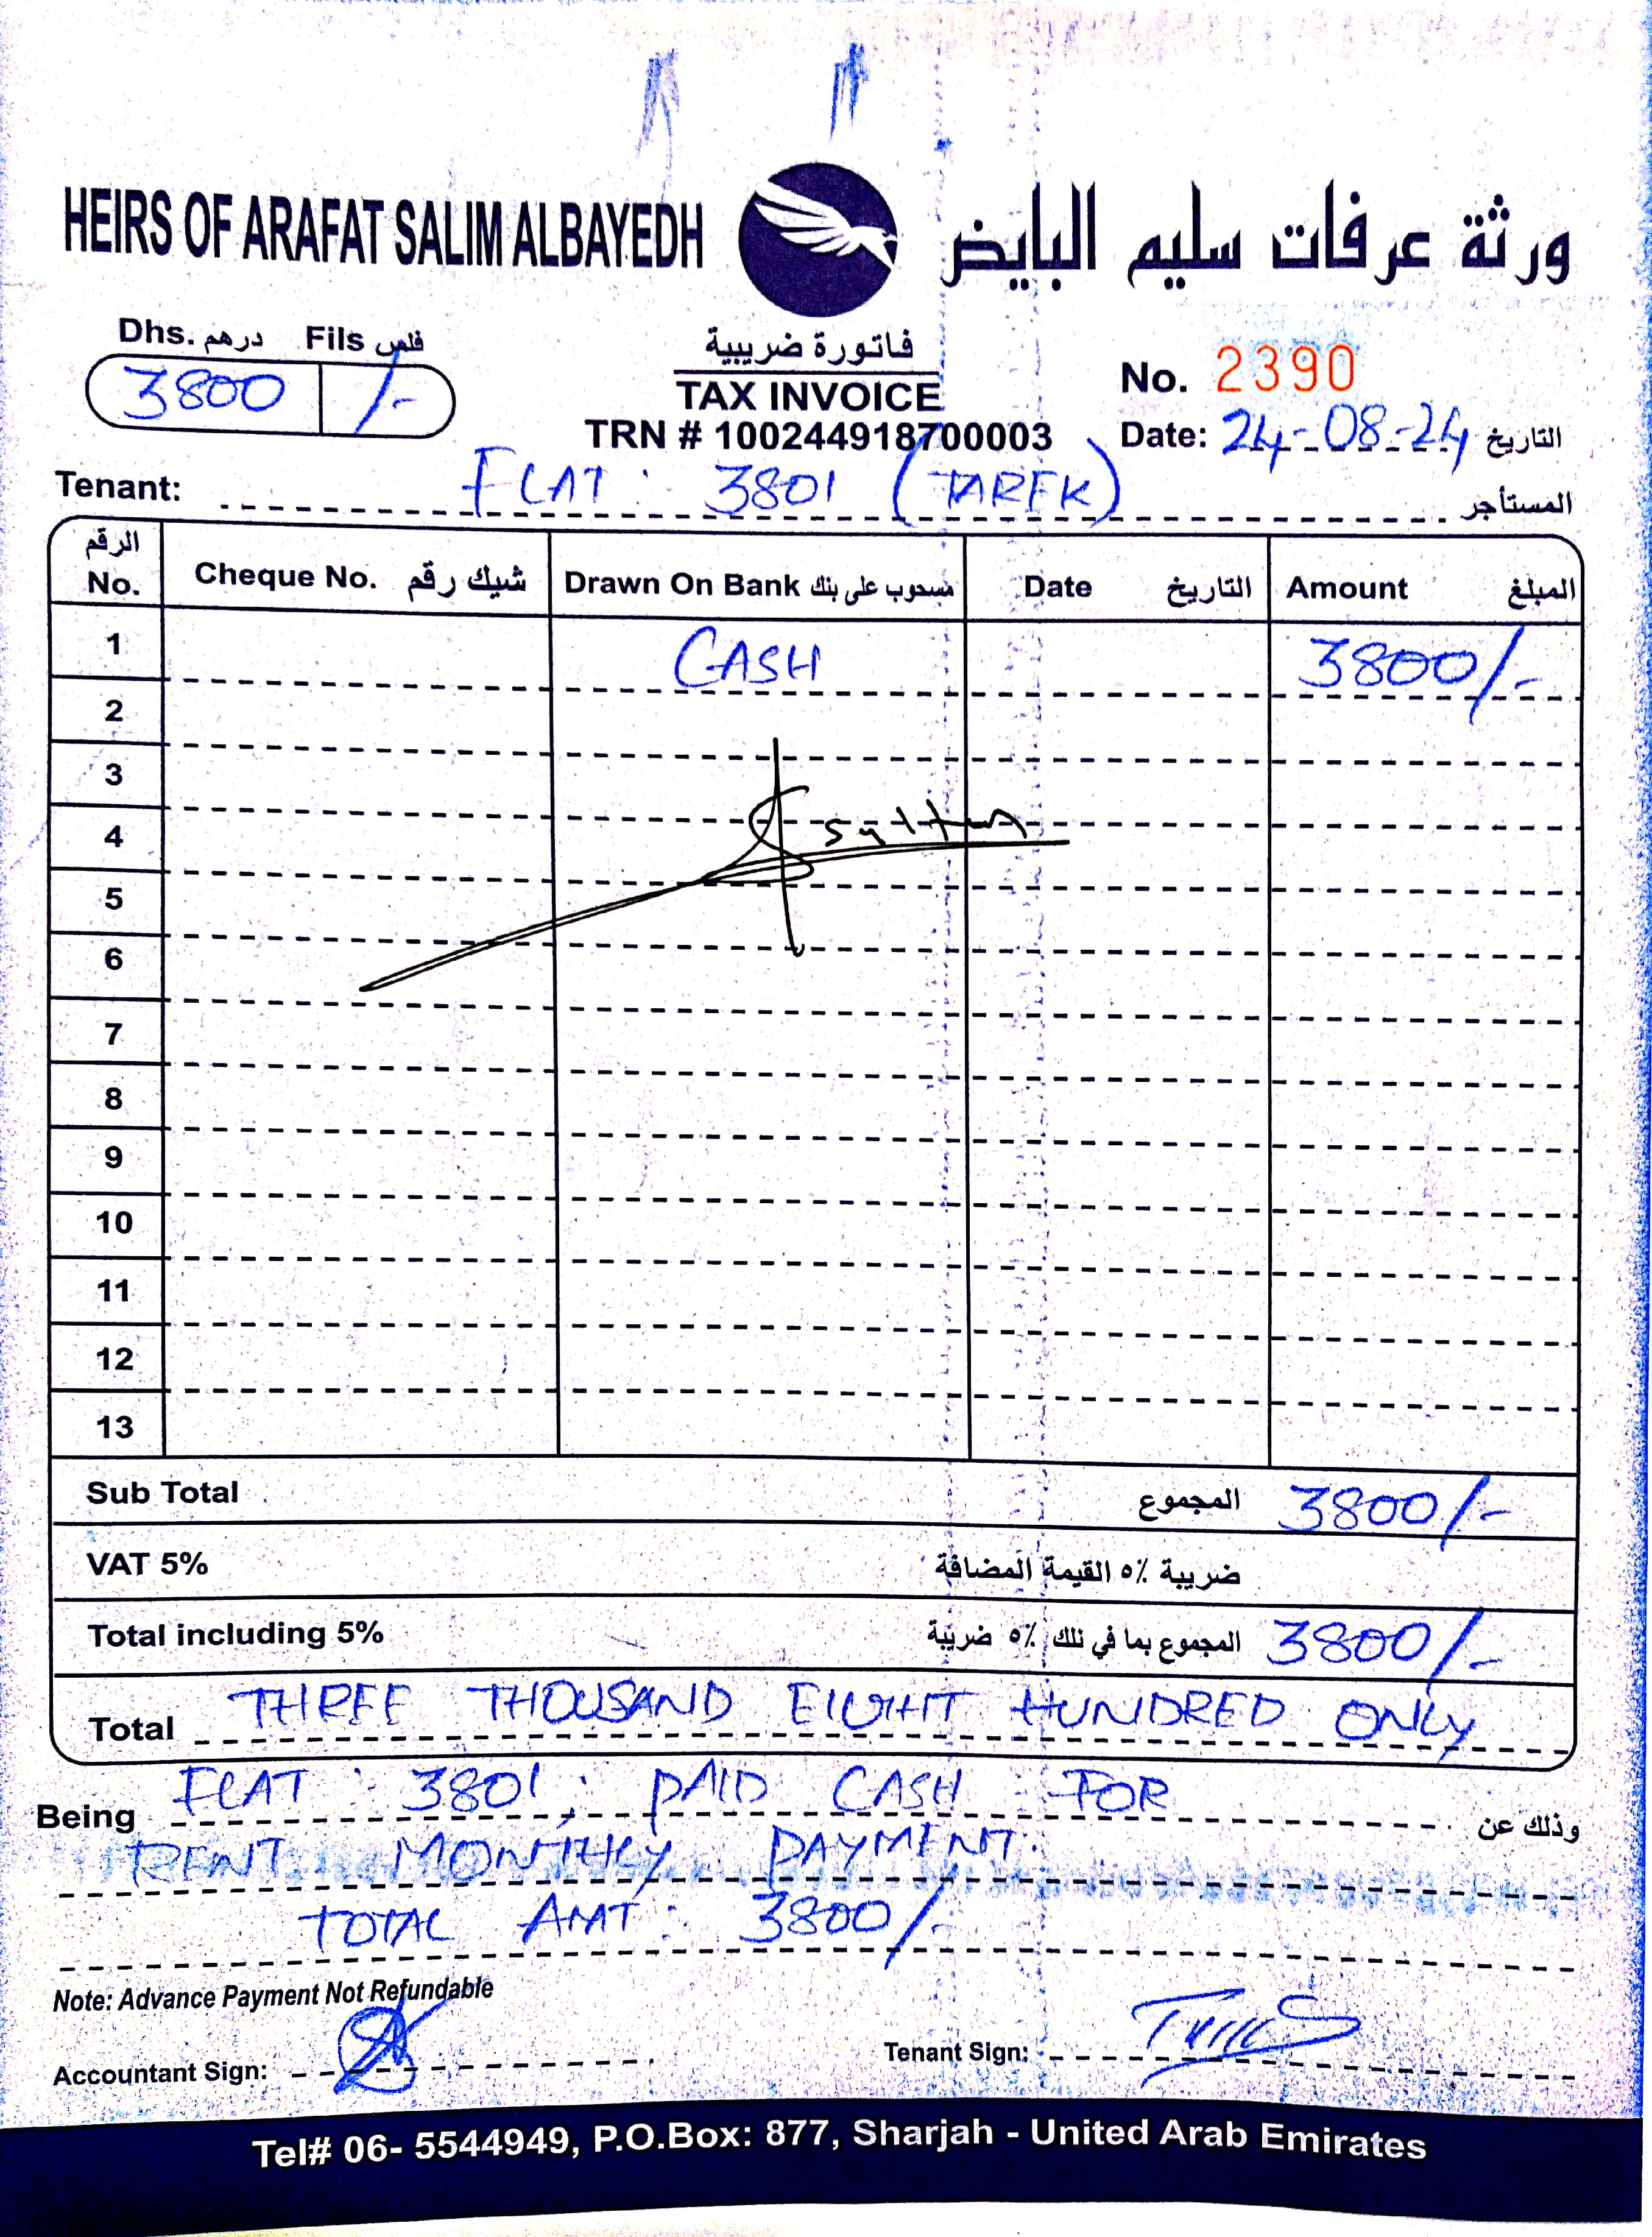 HEIRS OF ARAFAT SALIM ALBAYEDH ورثة عرفات سليم البايض
Dhs. درهم Fils فلس
3800 /-
فاتورة ضريبية
TAX INVOICE
TRN # 100244918700003
No. 2390
Date: 24-08-24 التاريخ
Tenant: FLAT : 3801 (TAREK) المستأجر
الرقم No. Cheque No. شيك رقم Drawn On Bank مسحوب على بنك Date التاريخ Amount المبلغ
1 CASH 3800/-
2
3
4 Sultan
5
6
7
8
9
10
11
12
13
Sub Total المجموع 3800/-
VAT 5% ضريبة ٥٪ القيمة المضافة
Total including 5% المجموع بما في ذلك ٥٪ ضريبة 3800/-
Total THREE THOUSAND EIGHT HUNDRED ONLY
Being FLAT : 3801, PAID CASH FOR وذلك عن
RENT MONTHLY PAYMENT.
TOTAL AMT : 3800/-
Note: Advance Payment Not Refundable
Accountant Sign: Tenant Sign:
Tel# 06- 5544949, P.O.Box: 877, Sharjah - United Arab Emirates